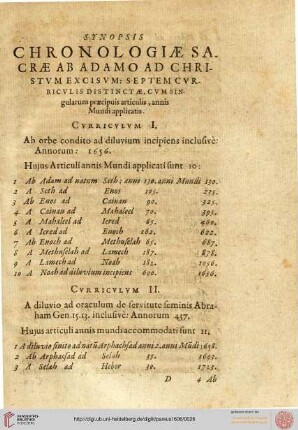 SYNOPSIS
CHRONOLOGIÆ SA-
CRÆ AB ADAMO AD CHRI-
STVM EXCISVM: SEPTEM CVR-
RICVLIS DISTINCTÆ, CVM SIN-
gularum præcipuis articulis, annis
Mundi applicatis.
CVRRICVLVM I.
Ab orbe condito ad diluvium incipiens inclusivè:
Annorum: 1656.
Hujus Articuli annis Mundi applicati sunt 10:
1 Ab Adam ad natum Seth: anni 130. anni Mundi 130.
2 A Seth ad Enos 105. 235.
3 Ab Enos ad Cainan 90. 325.
4 A Cainan ad Mahaleel 70. 395.
5 A Mahaleel ad Iered 65. 460.
6 A Iered ad Enoch 162. 622.
7 Ab Enoch ad Methuselah 65. 687.
8 A Methuselah ad Lamech 187. 878.
9 A Lamech ad Noah 182. 1056.
10 A Noah ad diluvium incipiens 600. 1656.
CVRRICVLVM II.
A diluvio ad oraculum de servitute seminis Abra-
ham Gen. 15. 13. inclusivè: Annorum 437.
Hujus articuli annis mundi accommodati sunt 11,
1 A diluvio finito ad natū Arphachsad anni 2. anni Mūdi 1658.
2 Ab Arphacsad ad Selah 35. 1693.
3 A Selah ad Heber 30. 1723.
D 4 Ab
http://digi.ub.uni-heidelberg.de/diglit/pareus1606/0026
© Universitätsbibliothek Heidelberg